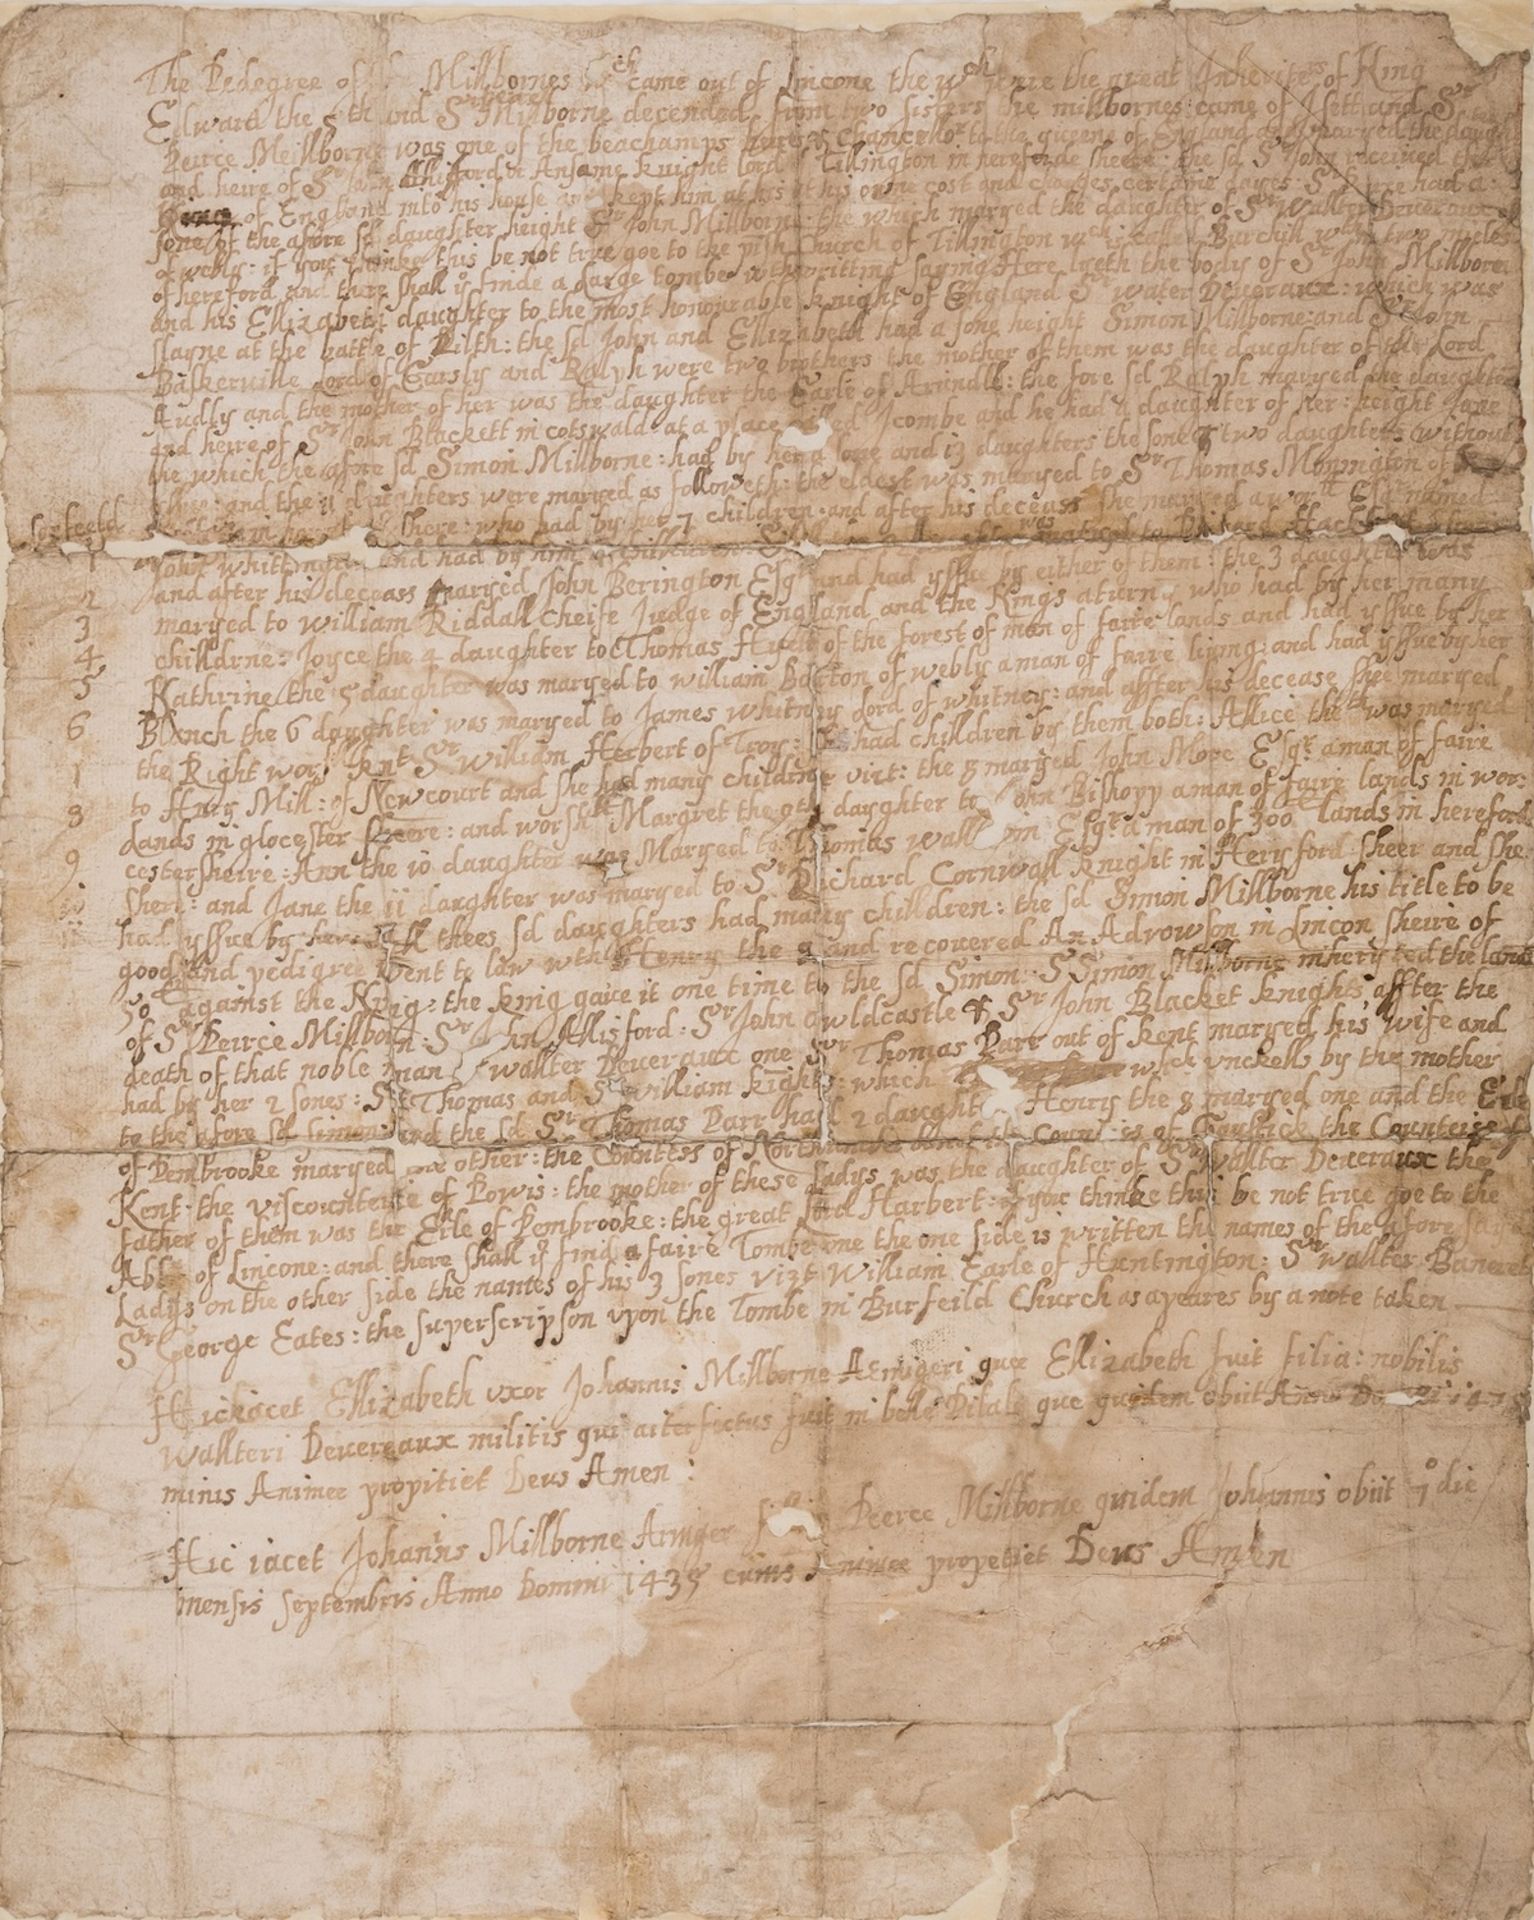 The Pedegree of the Millbornes wch came out of Lincone the wch were the great Inheriters of King
Edward the 5th and Sr Millborne decended from two sisters the millbornes came of Isett and Sr
Peirce Meillborne was one of the beachamps heirs & Chancehor to the queene of England and maryed the daugh
and heire of Sr John Allisford & Ansame knight lord of Tillington in hereforde sheere: the sd Sr John received the
King of England into his house and kept him at his at his owne cost and charges certaine dayes: Sr Peirce had a
sone of the afore sd daughter height Sr John Millborne the which maryed the daughter of Sr Wallter Deveraux
of webly: if you thinke this be not true goe to the pish Church of Tillington wch is called Burchill wth in two mieles
of hereford and there shall y finde a large tombe with writting saying Here lyeth the body of Sr John Millborne
and his Ellizabeth daughter to the most honourable knight of England Sr water Deveraux: which was
slayne at the battle of Pilth: the sd John and Ellizabeth had a sone height Simon Millborne: and Sr John
Baskerville Lord of Earsly and Ralph were two brothers the mother of them was the daughter of the Lord
Audly and the mother of her was the daughter the Earle of Arundle: the fore sd Ralph maryed the daughter
and heire of Sr John Blackett in cotswald at a place called Icombe and he had a daughter of her: height Jane
the which the afore sd Simon Millborne: had by her a sone and 13 daughters the sone & two daughters without
yssue: and the 11 daughters were maryed as followeth: the eldest was maryed to Sr Thomas Monington of
shere: who had by her 7 children and after his deceass she maryed a wortt Esqr named
1 John whittington and had by him children: was maryed to Richard Hackluit
2 and after his deceass maryed John Berington Esqr and had yssue by either of them: the 3 daughter was
3 maryed to william Riddall Cheife Judge of England and the Kings aturny who had by her many
4 chilldrne: Joyce the 4 daughter to Thomas Hyett of the forest of man of faire lands and had yssue by her
5 Kathrine the 5 daughter was maryed to william Barton of webly a man of faire liging: and had yssue by her
6 Blanch the 6 daughter was maryed to James whitney Lord of whitney: and affter his decease shee maryed
the Right worll knt Sr william Herbert of Troy: had children by them both: Allice the was maryed
to Hnry Mill: of Newcourt and she had many childrne vizt: the 8 maryed John More Esqr a man of faire
8 lands in glocester sheere: and worshtt Margret the 9th daughter to John Bishopp a man of faire lands in wor:
9 cestersheire: Ann the 10 daughter was Maryed to Thomas wallwin Esqr a man of 300 lands in hereford
10 sher: and Jane the 11 daughter was maryed to Sr Richard Cornwall knight in Heryford sheer and she
11 had yssue by her: all thees sd daughters had many chilldren: the sd Simon Millborne his title to be
good and pedigree went to law wth Henry the 8 and recovered An Advowson in Lincon sheire of
50 against the King: the king gave it one time to the sd Simon: Sr Simon Millborne inheryted the land
of Sr Peirce Millborn: Sr John Allisford: Sr John owldcastle & Sr John Blacket knights affter the
death of that noble man wallter Deveraux one Sr Thomas Parr out of kent maryed his wife and
had by her 2 sones: Sr Thomas and Sr william kights: which wch vnckells by the mother
to the afore sd simon: and the sd Sr Thomas Parr had 2 daught Henry the 8 maryed one and the Erle
of Pembrooke maryed the other: the Countess of Northumberland the Countess of the Counteiss of
Kent: the viscounteue of Powis: the mother of these Ladys was the daughter of Sr wallter Deveraux the
father of them was the Erle of Pembrooke: the great Lord Harbert: if you thinke this be not true goe to the
Abby of Lincone: and there shall y find a faire Tombe one the one side is written the names of the afore said
Ladys on the other side the names of his 3 sones vizt William Earle of Huntington: Sr wallter Baneret
Sr George Eates: the superscripson vpon the Tombe in Burfeild Church as apeares by a note taken
Hic iacet Ellizabeth vxor Johannis Millborne Armigeri quæ Ellizabeth fuit filia: nobilis
Wallteri Devereaux militis qui fuit in belle Pibale que quidem obiit Anno 147
minis Animee propitiet Deus Amen:
Hic iacet Johanins Millborne Armger Peerce Millborne quidem Johannis obiit 7 die
mensis Septembris Anno Domini 1435 cuius Animee propetiet Deus Amen